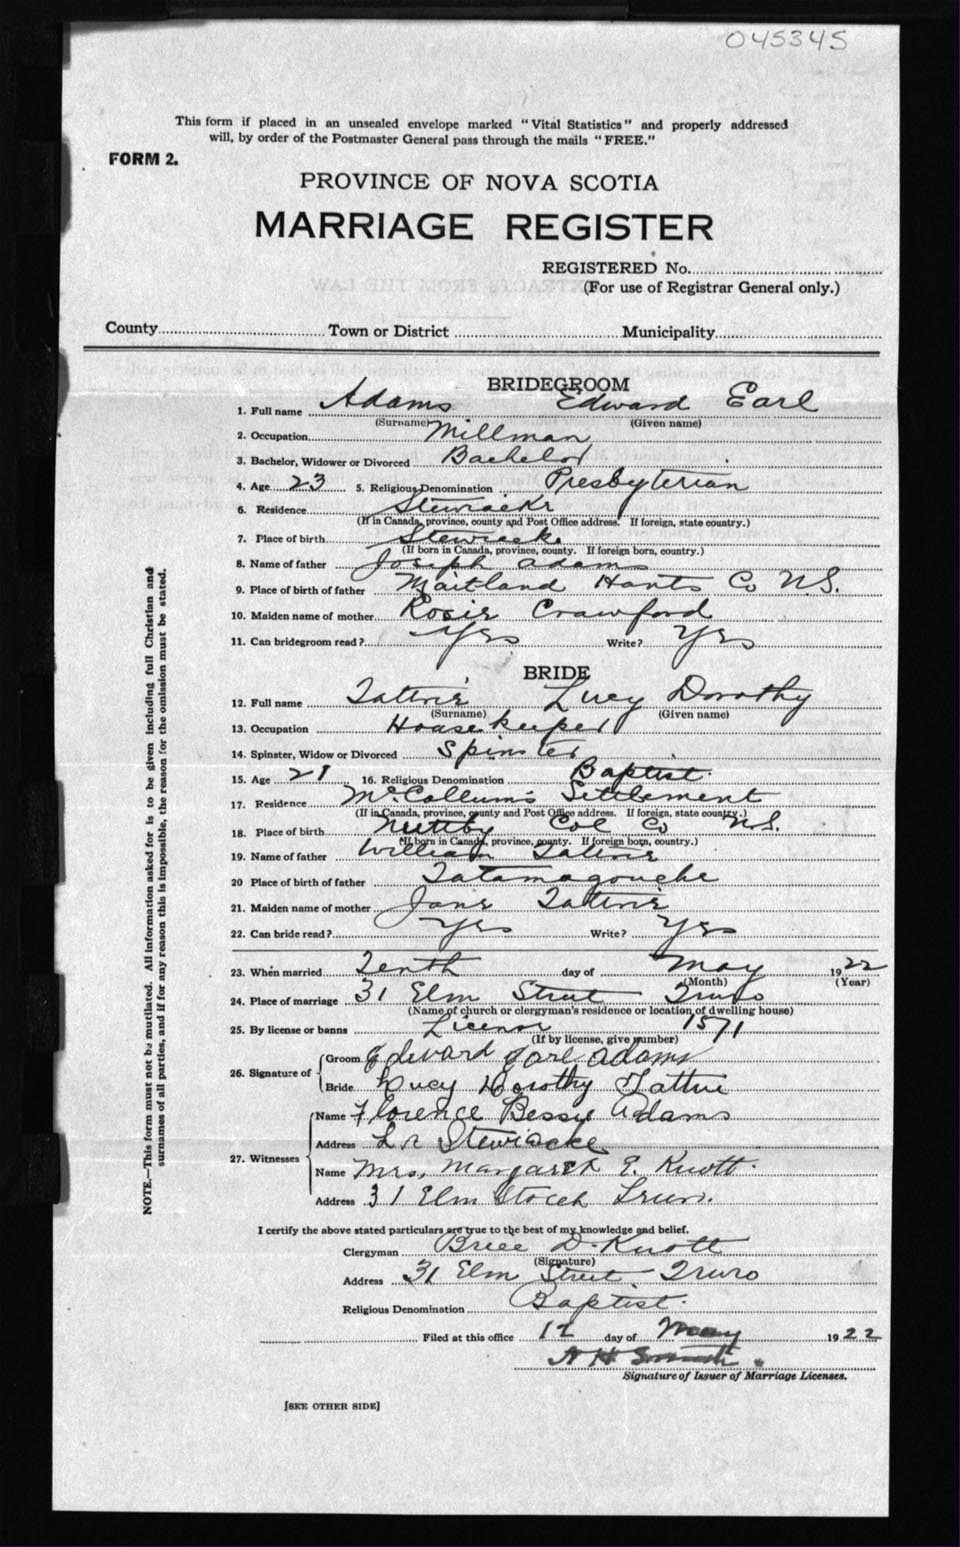 045345
This form if placed in an unsealed envelope marked "Vital Statistics" and properly addressed
will, by order of the Postmaster General pass through the mails "FREE."
FORM 2.
PROVINCE OF NOVA SCOTIA
MARRIAGE REGISTER
REGISTERED No.
(For use of Registrar General only.)
County Town or District Municipality
BRIDEGROOM
1. Full name Adams Edward Earl
(Surname) (Given name)
2. Occupation Millman
3. Bachelor, Widower or Divorced Bachelor
4. Age 23 5. Religious Denomination Presbyterian
6. Residence Stewiacke
(If in Canada, province, county and Post Office address. If foreign, state country.)
7. Place of birth Stewiacke
(If born in Canada, province, county. If foreign born, country.)
8. Name of father Joseph Adams
9. Place of birth of father Maitland Hants Co N.S.
10. Maiden name of mother Rosie Crawford
11. Can bridegroom read? Yes Write? Yes
BRIDE
12. Full name Tattrie Lucy Dorothy
(Surname) (Given name)
13. Occupation Housekeeper
14. Spinster, Widow or Divorced Spinster
15. Age 21 16. Religious Denomination Baptist.
17. Residence McCallum's Settlement
(If in Canada, province, county and Post Office address. If foreign, state country.)
18. Place of birth Nuttby Col Co N.S.
(If born in Canada, province, county. If foreign born, country.)
19. Name of father William Tattrie
20 Place of birth of father Tatamagouche
21. Maiden name of mother Jane Tattrie
22. Can bride read? Yes Write? Yes
23. When married Tenth day of May 1922
(Month) (Year)
24. Place of marriage 31 Elm Street Truro
(Name of church or clergyman's residence or location of dwelling house)
25. By license or banns License 1571
(If by license, give number)
26. Signature of Groom Edward Earl Adams
Bride Lucy Dorothy Tattrie
27. Witnesses Name Florence Bessie Adams
Address Lr Stewiacke
Name Mrs. Margaret E. Knott.
Address 31 Elm Street Truro.
I certify the above stated particulars are true to the best of my knowledge and belief.
Clergyman Brice D. Knott
(Signature)
Address 31 Elm Street Truro
Religious Denomination Baptist.
Filed at this office 12 day of May 1922
A H Smith.
Signature of Issuer of Marriage Licenses.
[SEE OTHER SIDE]
NOTE.—This form must not be mutilated. All information asked for is to be given including full Christian and
surnames of all parties, and if for any reason this is impossible, the reason for the omission must be stated.